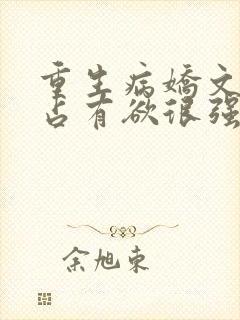 重生病娇文
占有欲很强
余旭东